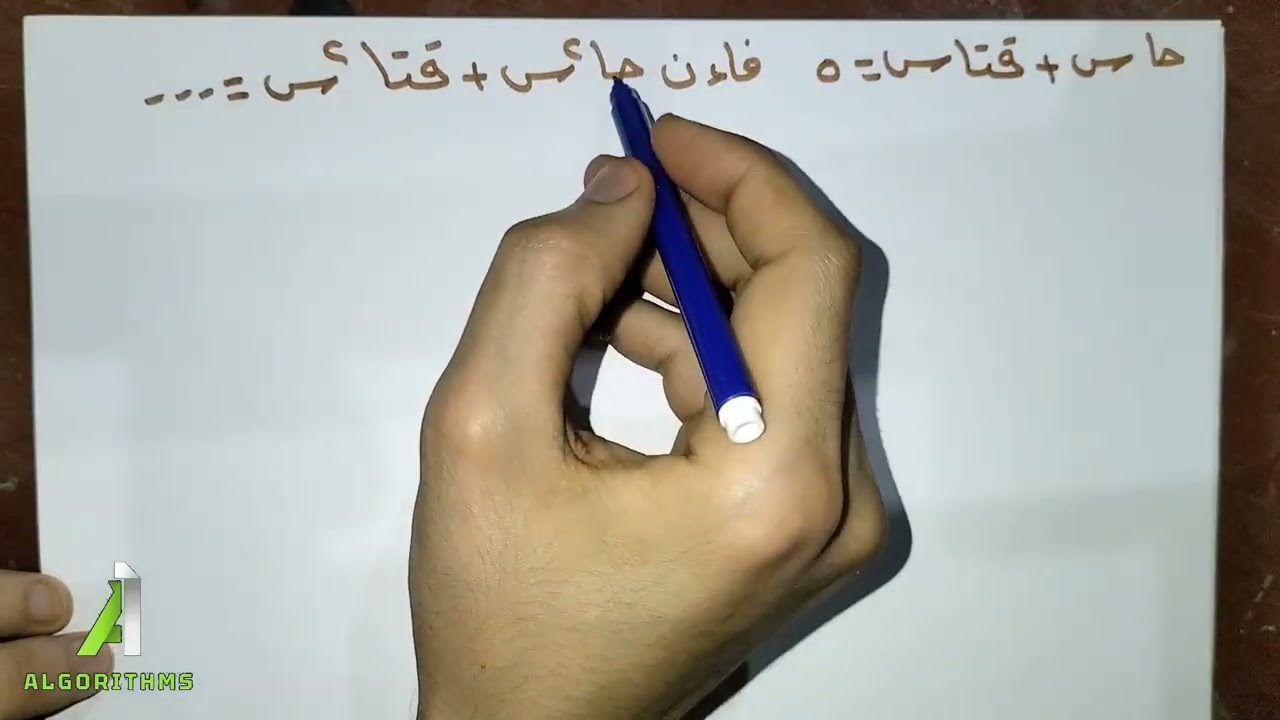 حا س + قتا س = ٥ فاءن حا٢س + قتا٢س = ...
ALGORITHMS